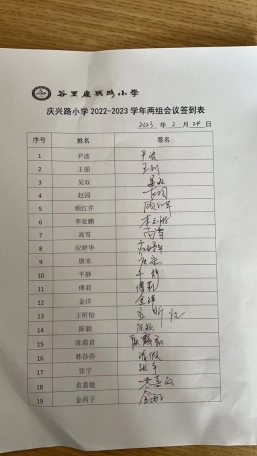 谷里庆兴路小学
庆兴路小学 2022-2023 学年两组会议签到表
2023 年 2 月 24 日
序号 姓名 签名
1 尹波 尹波
2 王丽 王丽
3 吴双 吴双
4 赵园 赵园
5 顾红芹 顾红芹
6 李亚鹏 李亚鹏
7 高雪 高雪
8 应婷华 应婷华
9 唐宋 唐宋
10 平静 平静
11 傅莉 傅莉
12 金洋 金洋
13 王昕怡 昕怡
14 陈颖 陈颖
15 君
16 林莎莎 请假
17 张宇 张宇
18 袁嘉敏
19 金西子 金西子